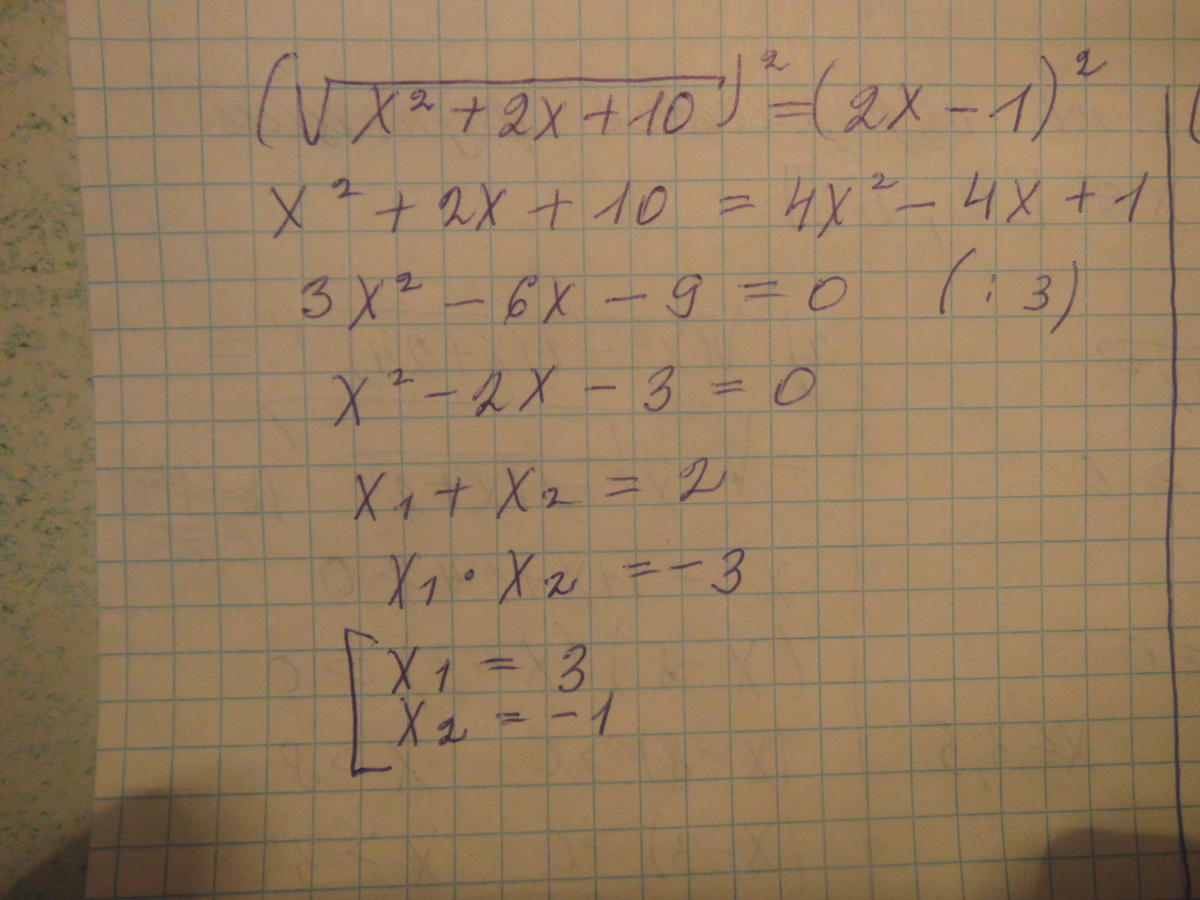 (√x² + 2x + 10)² = (2x - 1)²
x² + 2x + 10 = 4x² - 4x + 1
3x² - 6x - 9 = 0 (: 3)
x² - 2x - 3 = 0
x₁ + x₂ = 2
x₁ · x₂ = -3
[ x₁ = 3
x₂ = -1